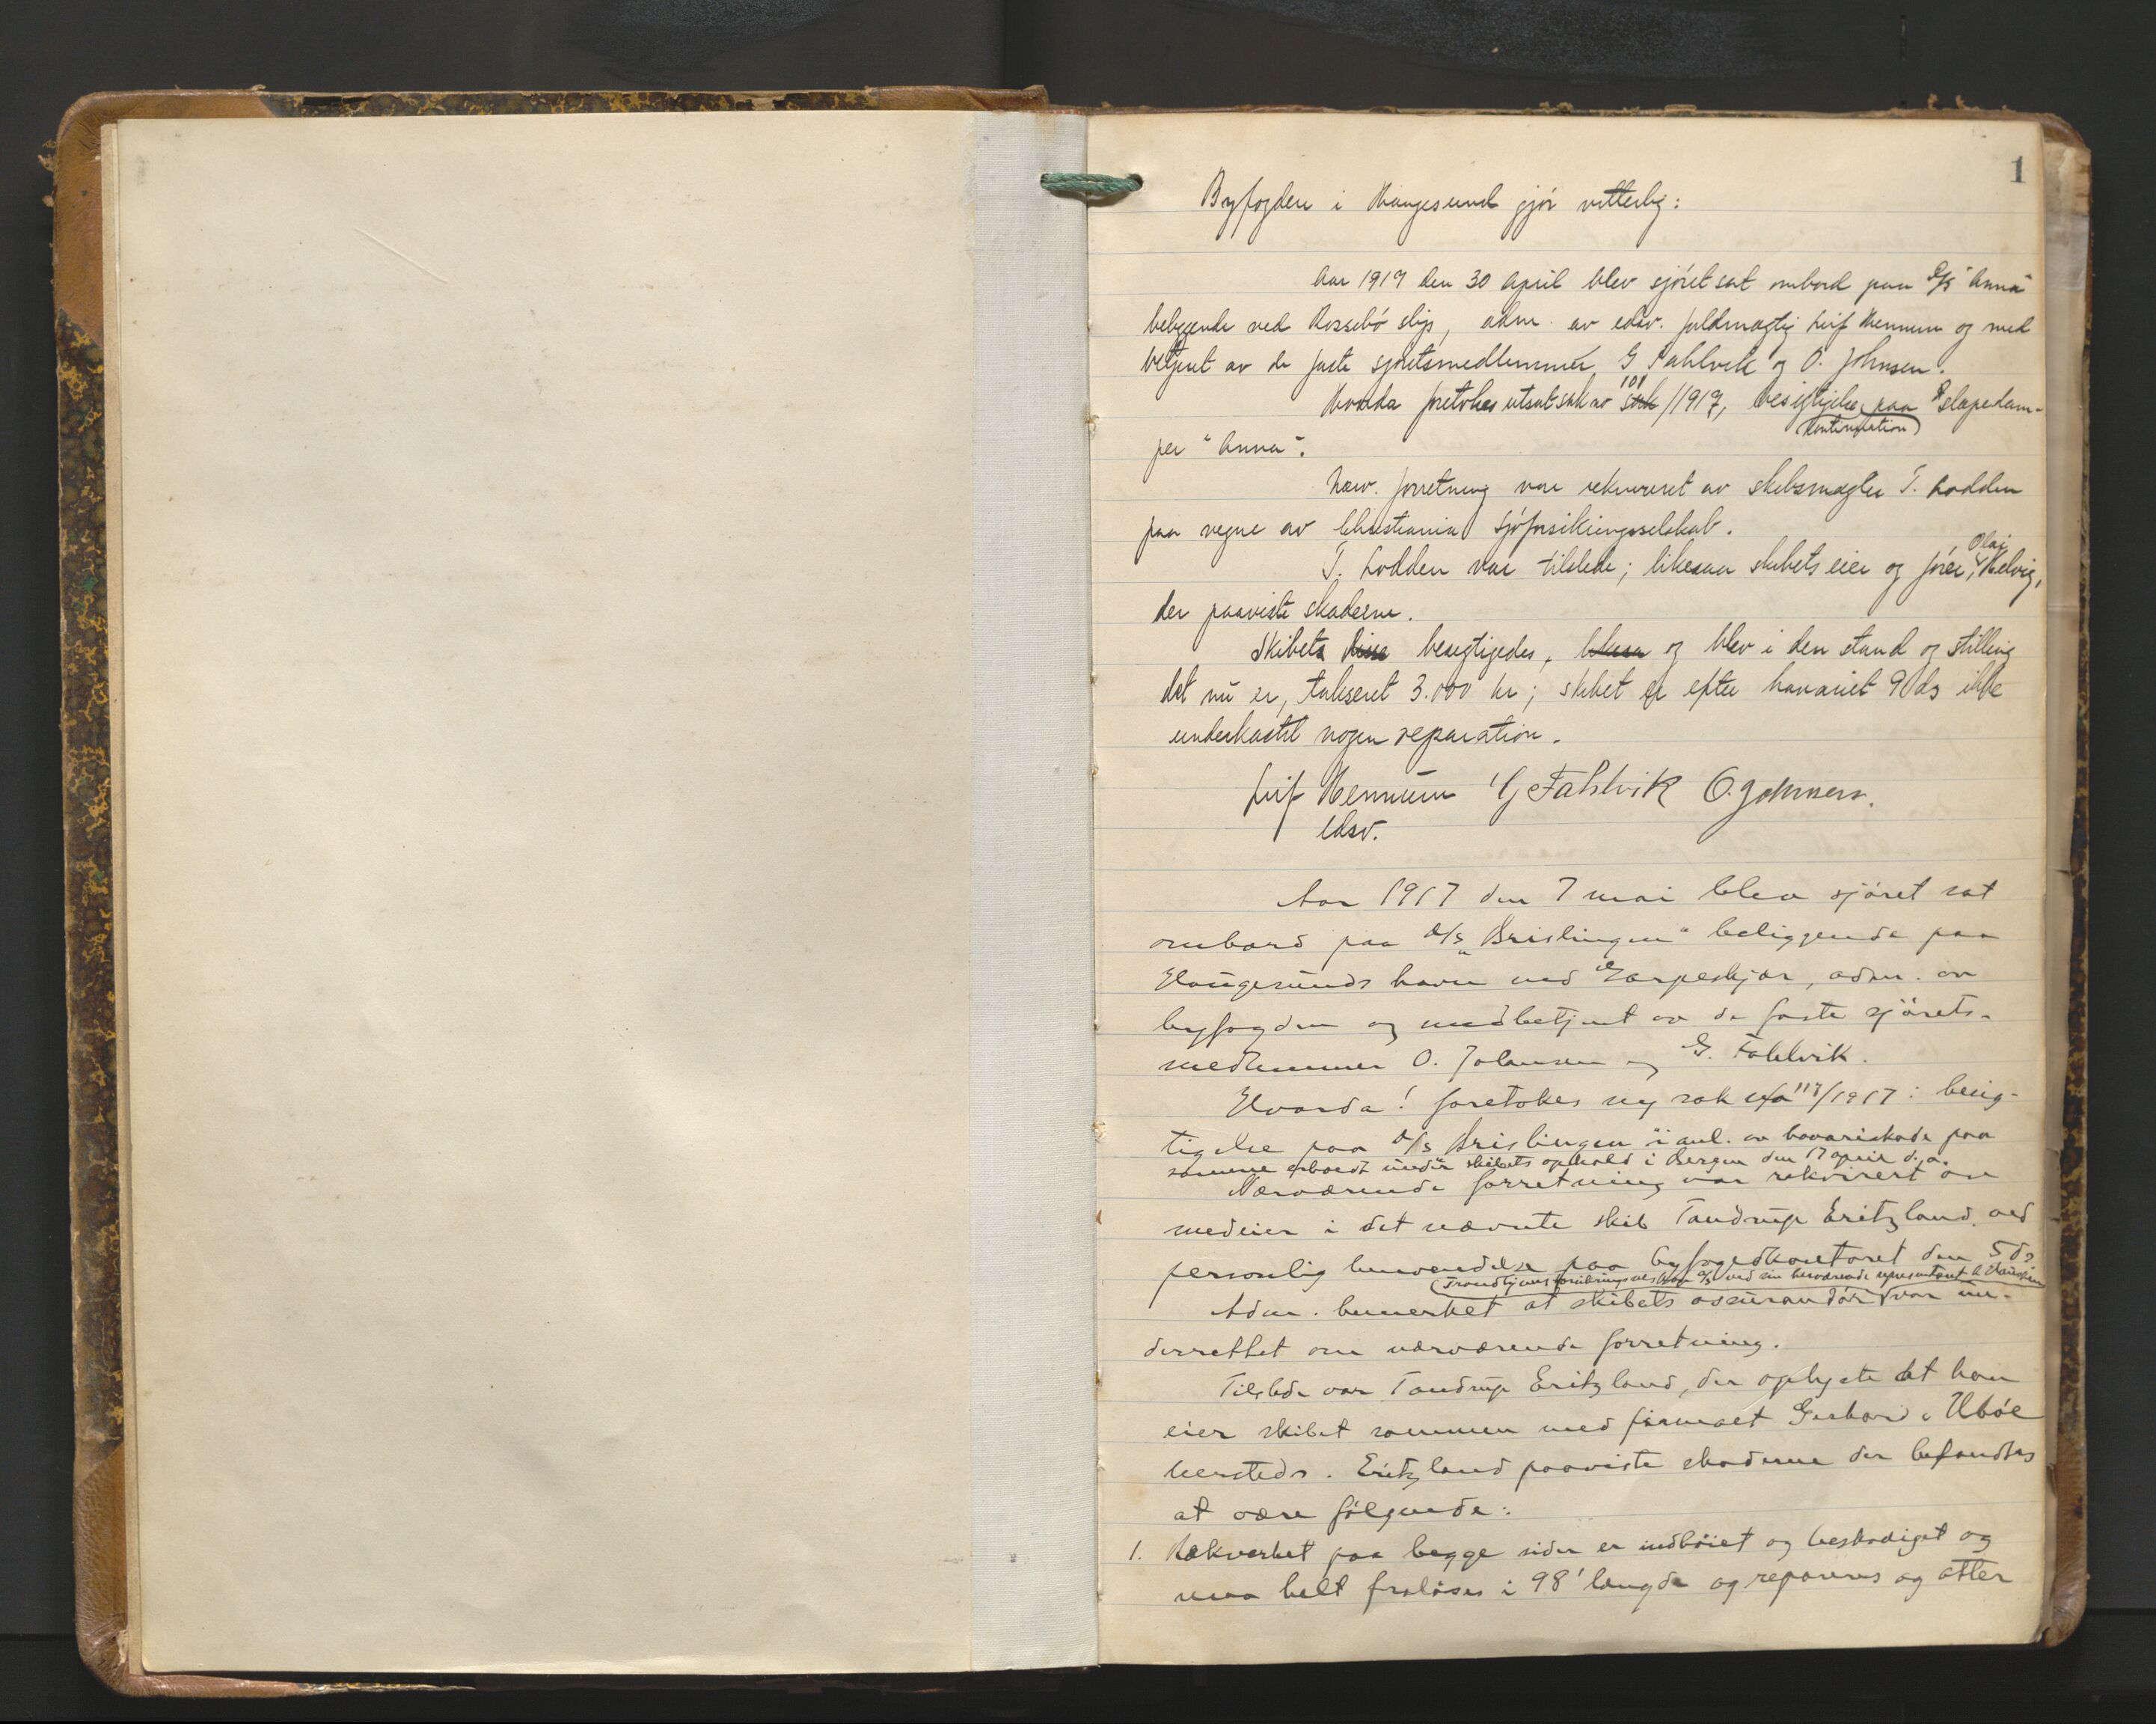 1
Byfogden i Haugesund gjör vitterlig:
Aar 1917 den 30 april blev sjöret sat ombord paa D/S "Anna"
beliggende ved Rossebö slip, adm. av edsv. fuldmægtig Leif Hennum og med
betjent av de faste sjöretsmedlemmer, G Fahlvik og O. Johnsen.
Hvorda foretokes utsat sak no 101/1917, besigtigelse (kontinuation) paa slæpedam-
per "Anna".
Nærv. forretning var rekvireret av skibsmægler T. Lodden
paa vegne av Christiania Sjöforsikringsselskab.
T. Lodden var tilstede; likesaa skibets eier og förer, Olai Helvig,
der paaviste skaderne.
Skibet besigtigedes, og blev i den stand og stilling
det nu er, takseret 3.000 kr; skibet er efter havariet 9 ds ikke
underkastet nogen reparation.
Leif Hennum G Fahlvik O. Johnsen.
edsv.
Aar 1917 den 7 mai blev sjöret sat
ombord paa D/S "Brislingen" beliggende paa
Haugesunds havn ved Garpeskjær, adm. av
byfogden og medbetjent av de faste sjörets-
medlemmer O. Johnsen og G. Fahlvik.
Hvorda! foretokes ny sak no 117/1917: besig-
tigelse paa D/S "Brislingen" i anl. av havariskade paa
samme erholdt under skibets ophold i Bergen den 17 april d. a.
Nærværende forretning var rekvirert av
medeier i det nævnte skib Tandrup Eritzland ved
personlig henvendelse paa byfogedkontoret den 5 ds
(Trondhjems forsikringsselskap A/S ved sin herværende representant
Adm. bemerket at skibets assurandör var un-
derrettet om nærværende forretning.
Tilstede var Tandrup Eritzland, der oplyste at han
eier skibet sammen med firmaet Gerhard Uböe
hersteds. Eritzland paaviste skaderne der befandtes
at være fölgende:
1. Rækverket paa begge sider er indböiet og beskadiget og
maa helt fralöses i 98' længde og repareres og atter